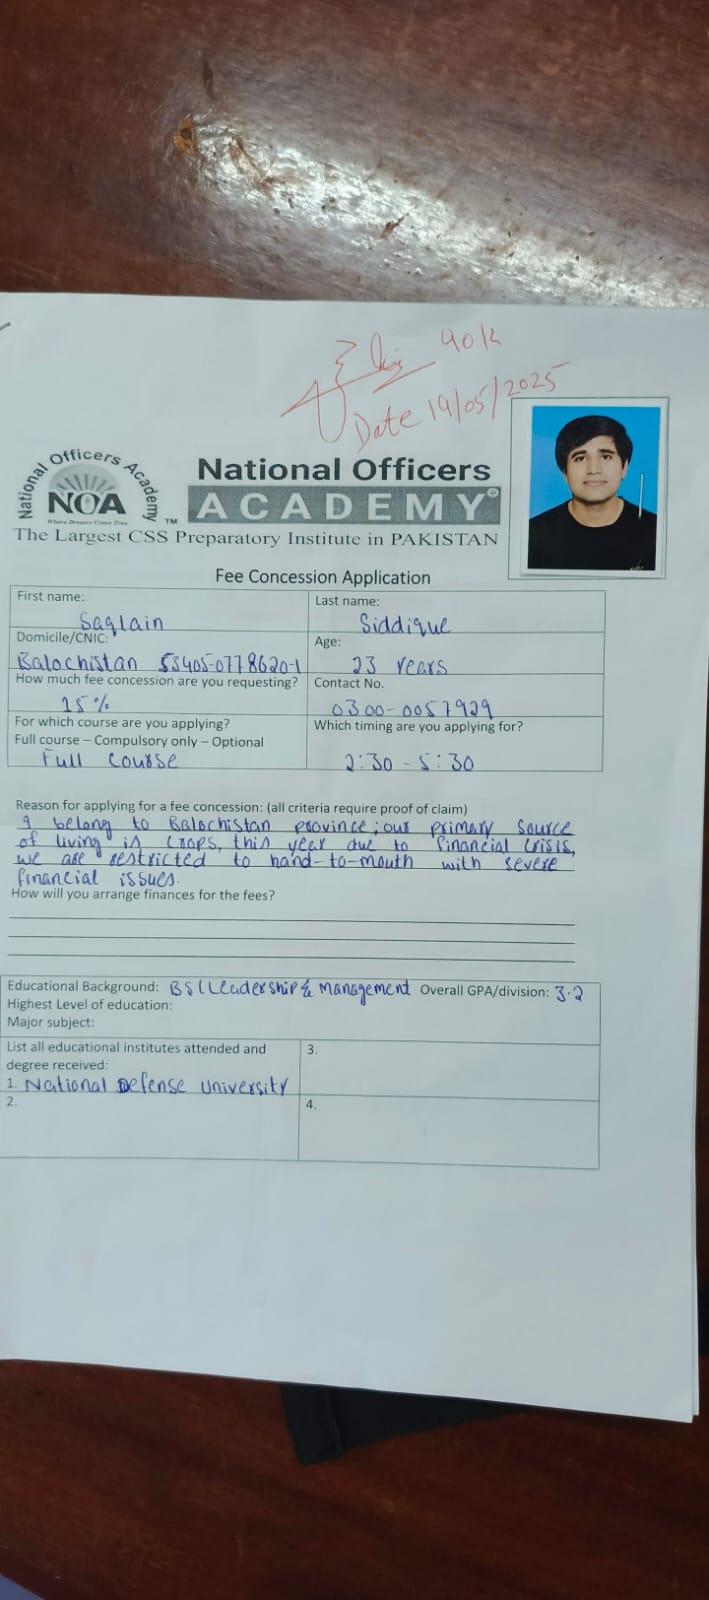 90k
Date 19/05/2025
National Officers Academy
NOA
Where Dreams Come True
TM
National Officers
ACADEMY®
The Largest CSS Preparatory Institute in PAKISTAN
Fee Concession Application
First name:
Saqlain
Last name:
Siddique
Domicile/CNIC:
Balochistan 53405-0778620-1
Age:
23 Years
How much fee concession are you requesting?
15%
Contact No.
0300-0057929
For which course are you applying?
Full course – Compulsory only – Optional
Full Course
Which timing are you applying for?
2:30 - 5:30
Reason for applying for a fee concession: (all criteria require proof of claim)
I belong to Balochistan province; our primary source
of living is crops, this year due to financial crisis,
we are restricted to hand-to-mouth with severe
financial issues.
How will you arrange finances for the fees?
Educational Background: BS (Leadership & Management Overall GPA/division: 3.2
Highest Level of education:
Major subject:
List all educational institutes attended and
degree received:
1. National Defense University
2.
3.
4.